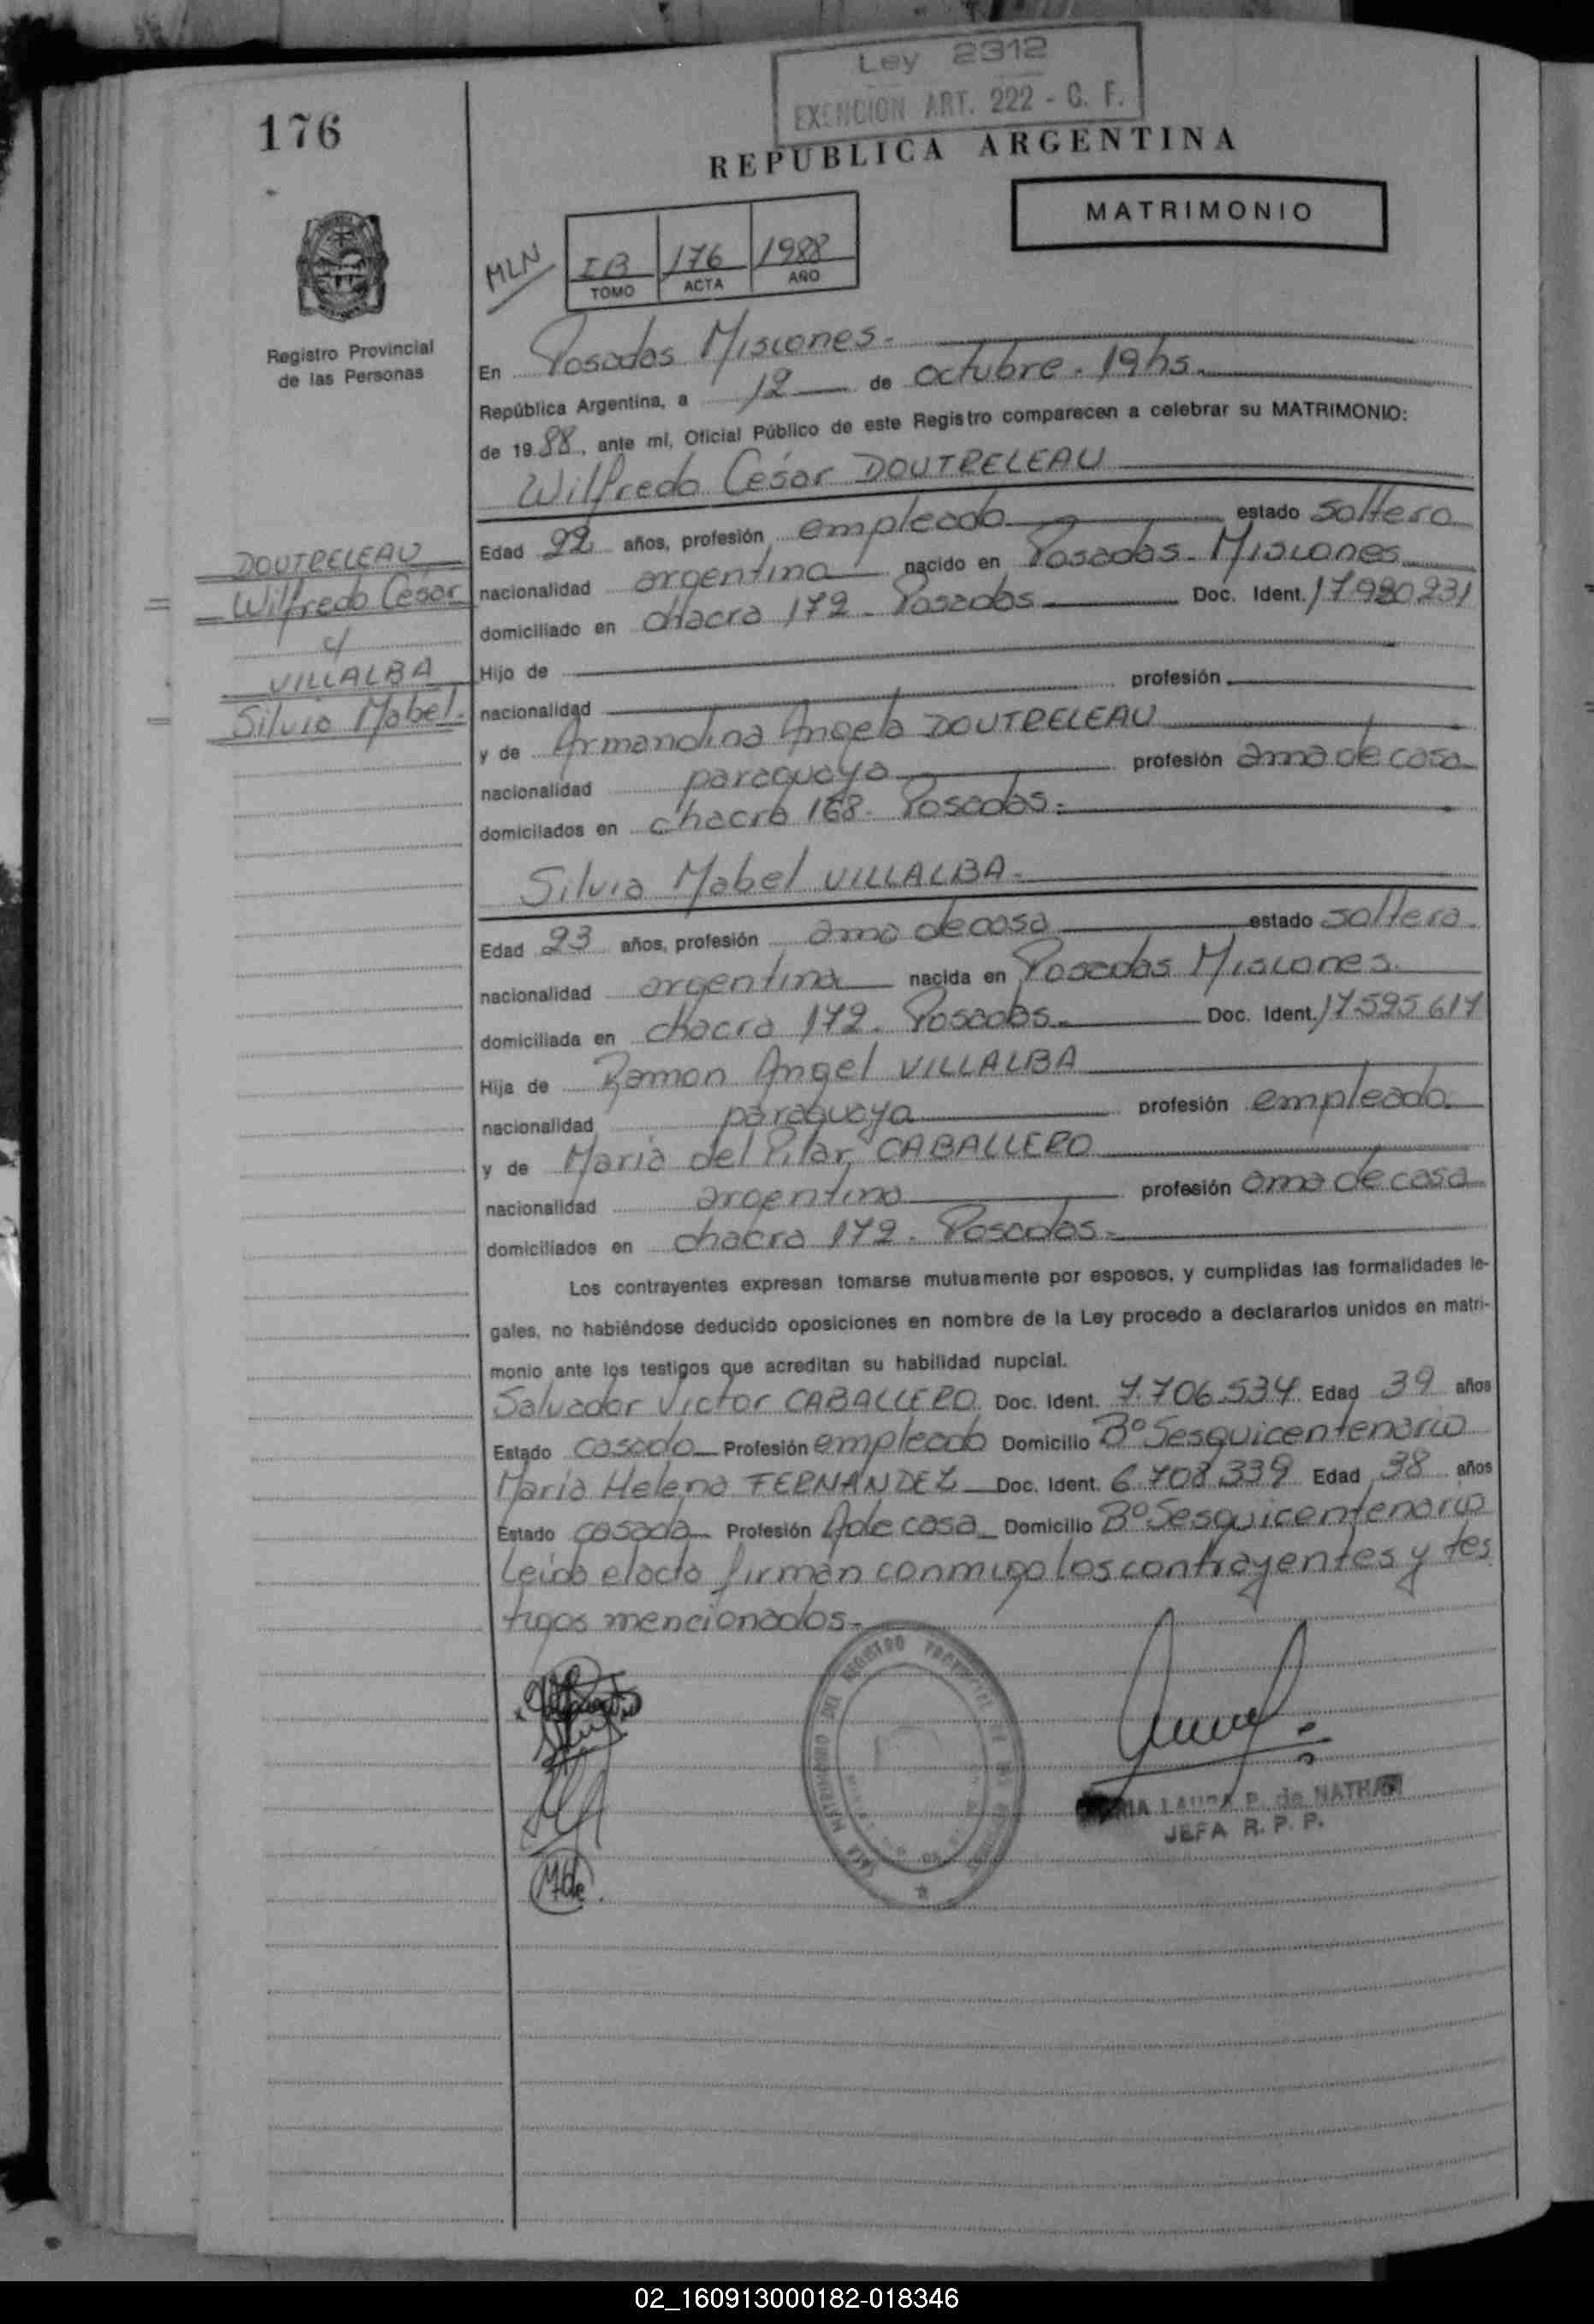 Ley 2312
EXENCION ART. 222 - C. F.
176
REPUBLICA ARGENTINA
MATRIMONIO
MLN
IB 176 1988
TOMO ACTA AÑO
Registro Provincial
de las Personas
En Posadas Misiones.
República Argentina, a 12 de octubre. 19hs.
de 1988, ante mí, Oficial Público de este Registro comparecen a celebrar su MATRIMONIO:
Wilfredo César DOUTRELEAU
Edad 22 años, profesión empleado estado soltero
nacionalidad argentina nacido en Posadas - Misiones
domiciliado en chacra 172 - Posadas Doc. Ident. 17.980.231
Hijo de
nacionalidad profesión
y de Armandina Angela DOUTRELEAU
nacionalidad paraguaya profesión ama de casa
domicilados en chacra 168 - Posadas.
DOUTRELEAU
Wilfredo César
c/
VILLALBA
Silvia Mabel.
Silvia Mabel VILLALBA
Edad 23 años, profesión ama de casa estado soltera.
nacionalidad argentina nacida en Posadas Misiones.
domiciliada en chacra 172. Posadas. Doc. Ident. 17.595.617
Hija de Ramon Angel VILLALBA
nacionalidad paraguaya profesión empleado.
y de Maria del Pilar CABALLERO
nacionalidad argentina profesión ama de casa
domiciliados en chacra 172. Posadas.
Los contrayentes expresan tomarse mutuamente por esposos, y cumplidas las formalidades le-
gales, no habiéndose deducido oposiciones en nombre de la Ley procedo a declararlos unidos en matri-
monio ante los testigos que acreditan su habilidad nupcial.
Salvador Victor CABALLERO Doc. Ident. 7.706.534 Edad 39 años
Estado casado Profesión empleado Domicilio Bº Sesquicentenario
Maria Helena FERNANDEZ Doc. Ident. 6.708.339 Edad 38 años
Estado casada Profesión A de casa Domicilio Bº Sesquicentenario
Leida el acta firman conmigo los contrayentes y tes
tigos mencionados.
REGISTRO PROVINCIAL DE LAS
MARIA LAURA P. de NATHAN
JEFA R. P. P.
02_160913000182-018346